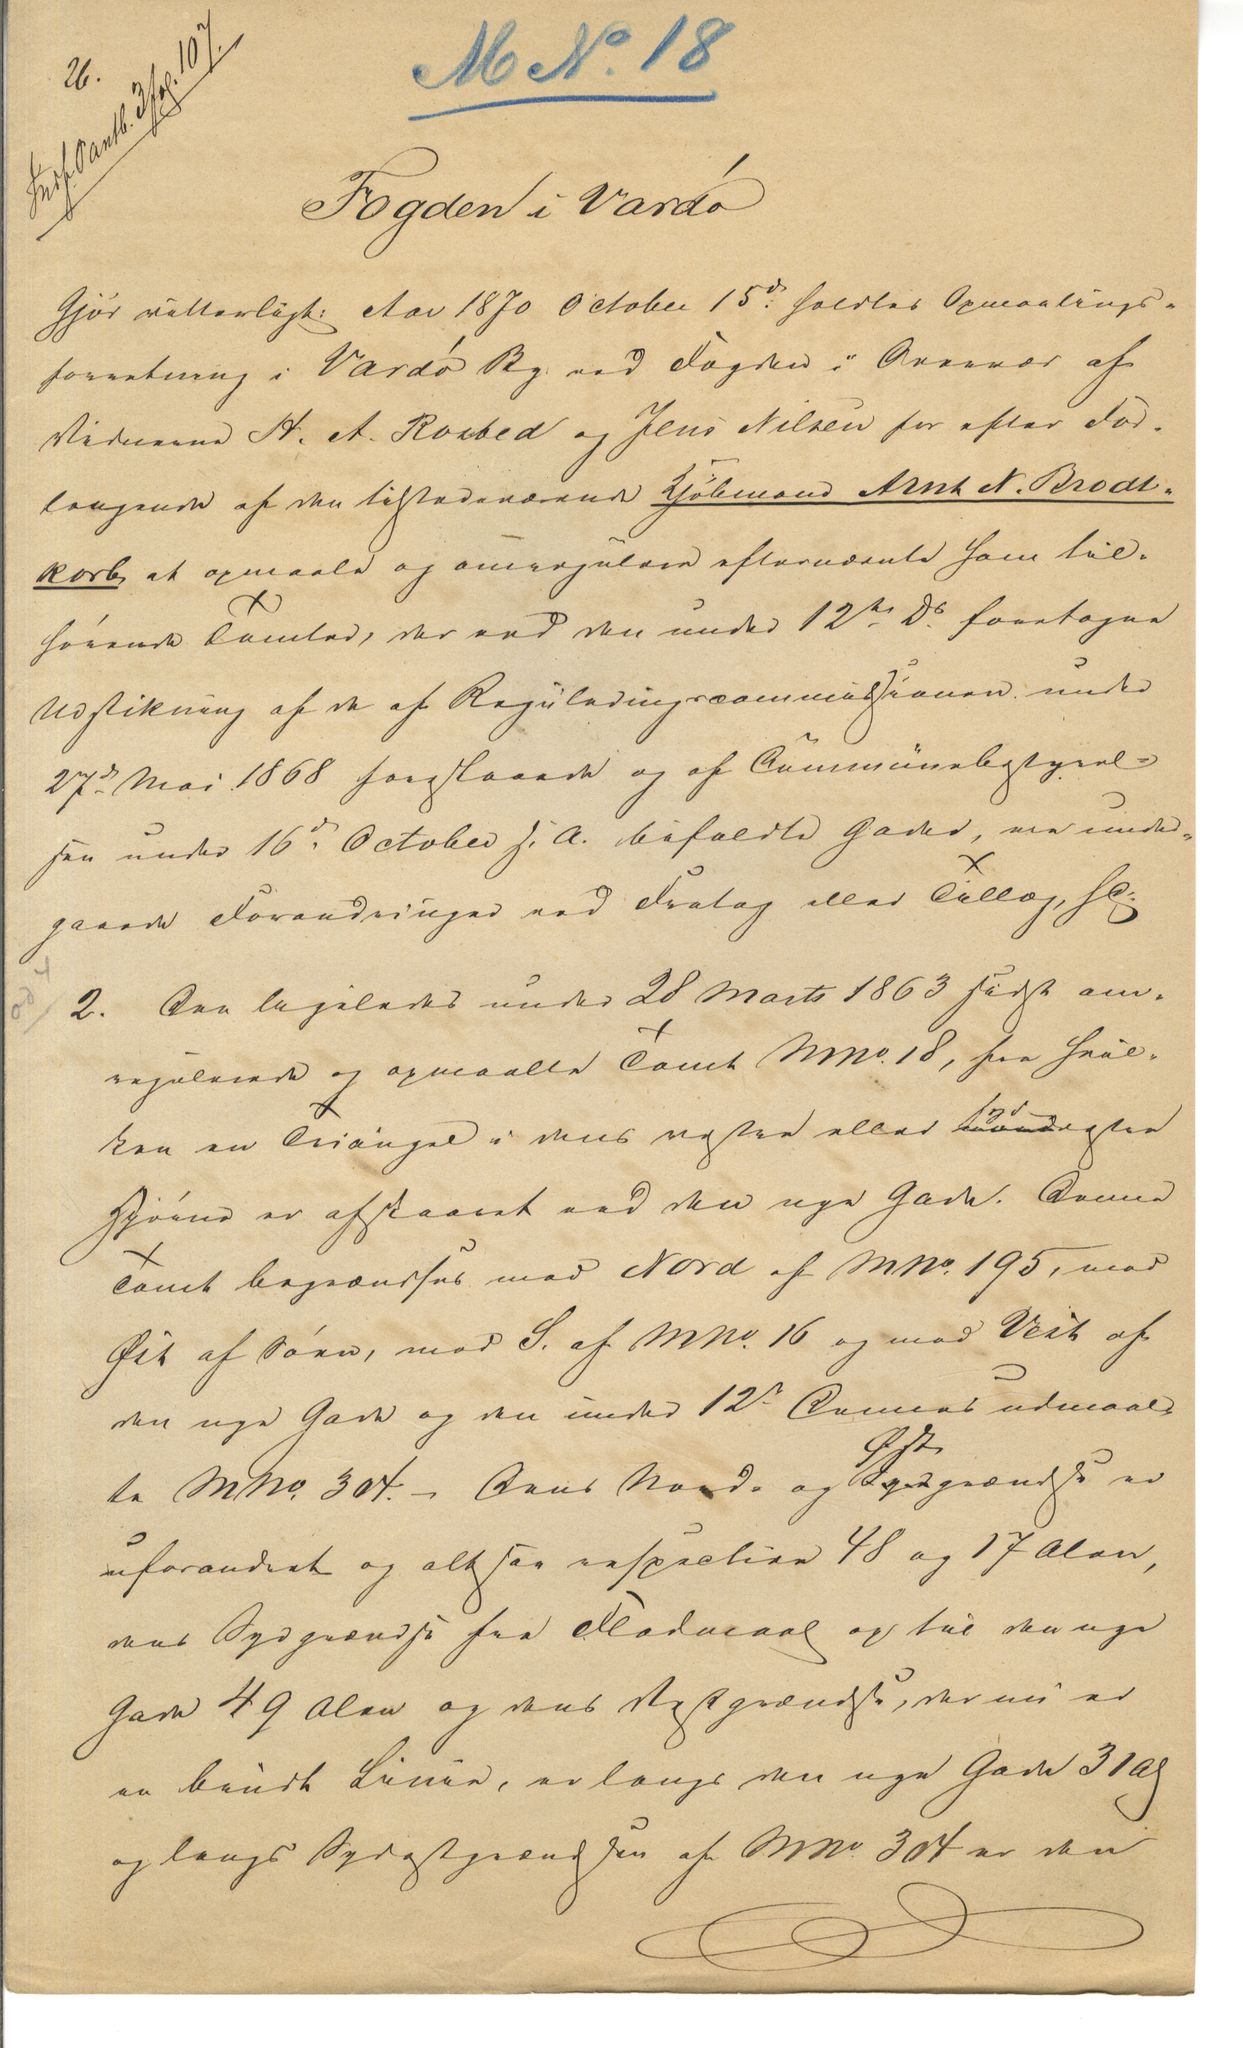 M No. 18
26.
Indf. Pantb. 3 fol. 107.
Fogden i Vardö
Gjør vitterligt: Aar 1870 October 15d: holdtes Opmaalings-
forretning i Vardö By ved Fogden i Overvær af
Vidnerne H. A. Rosbed og Jens Nilsen for efter For-
langende af den tilstedeværende Kjöbmand Arnt N. Brodt-
korb at opmaale og omregulere efternævnte ham til-
hørende Tomter, der ved den under 12te Ds. foretagne
Udstikning af de af Reguleringscommissionen under
27d Mai 1868 foreslaaede og af Communebestyrel-
sen under 16d October s. A. bifaldte Gader, ere under-
gaaede Forandringer ved Fratag eller Tillæg, sc:
2. Den ligeledes under 28 Marts 1863 sidst om-
regulerede og opmaalte Tomt MNo. 18, fra hvil-
ken en Triangel i dens vestre eller syd vestre
Hjørne er afskaaret ved den nye Gade. Denne
Tomt begrændses mod Nord af MNo. 195, mod
Øst af Søen, mod S. af MNo. 16 og mod Vest af
den nye Gade og den under 12te Dennes udmaal-
te MNo. 304. – Dens Nord- og Øst
grændse er
uforandret og altsaa respective 48 og 17 Alen,
dens Sydgrændse fra Flodmaal og til den nye
Gade 49 Alen og dens Vestgrændse, der nu er
en brudt Linie, er langs den nye Gade 31 Al
og langs Sydostgrændsen af MNo. 304 er den